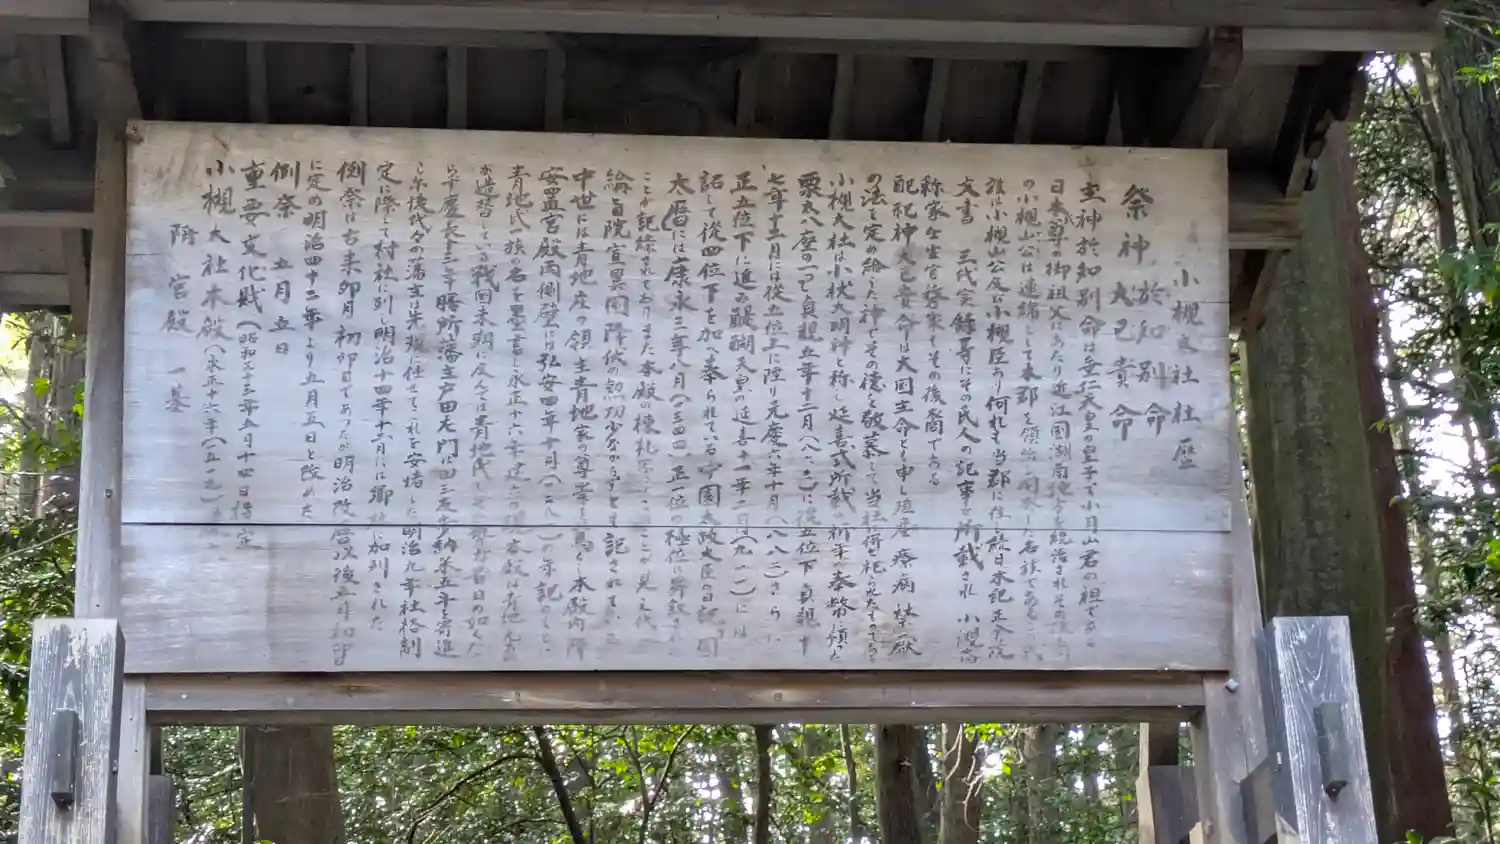 小槻大社社歴
祭神 於知別命
大己貴命
主神於知別命は垂仁天皇の皇子で小月山君の祖である
日本 尊の御祖父にあたり近江国湖南地方を統治されその後
の小槻山公は連綿として本郡を領治し
族は小槻山公及び小槻臣あり何れも当郡に住 続日本記 正倉院
文書 三代実録等にその氏人の記事が所載され 小槻宿
称家壬生官務家もその後裔である
配祀神大己貴命は大国主命とも申し 療病禁厭
の法を定め給した神でその徳を敬慕して当社に
小槻大社は小杖大明神と称し延喜式所載 祈年の奉幣に預
栗太八座の一つで貞観五年十二月(八六三)に従五位下 貞観十
七年十二月には従五位上に陞り元慶六年十月(八八二)さらに
正五位下に進み醍醐天皇の延喜十一年二月(九一一)には
詔して従四位下を加へ奉られている 中園太政大臣の日記「園
太暦」には康永三年八月(一三四四)正一位の極位に昇叙された
ことが記録されておりまた本殿の棟札等
綸旨院宣異国降伏の勲功少なからずとも記されている
中世には青地庄の領主青地家の尊崇も篤く本殿内陣
安置宮殿内側壁には弘安四年十月(一二八一)の年記のもとに
青地氏一族の名を墨書し永正十六年建立の現本殿は青地元
が造替している戦国末期に及んでは青地氏
らず慶長十三年膳所藩主戸田左門は田三反歩納米五斗を寄進
し 後代々の藩主は先規に任せてこれを安堵した明治九年社格制
定に際して村社に列し明治十四年十二月には郷社に加列された
例祭は古来卯月初卯日であったが明治改暦以後五月初卯日
に定め明治四十二年より五月五日と改めた
例祭 五月五日
重要文化財(昭和三十三年五月十四日指定
小槻大社本殿(永正十六年(一五一九)
附 宮殿 一基